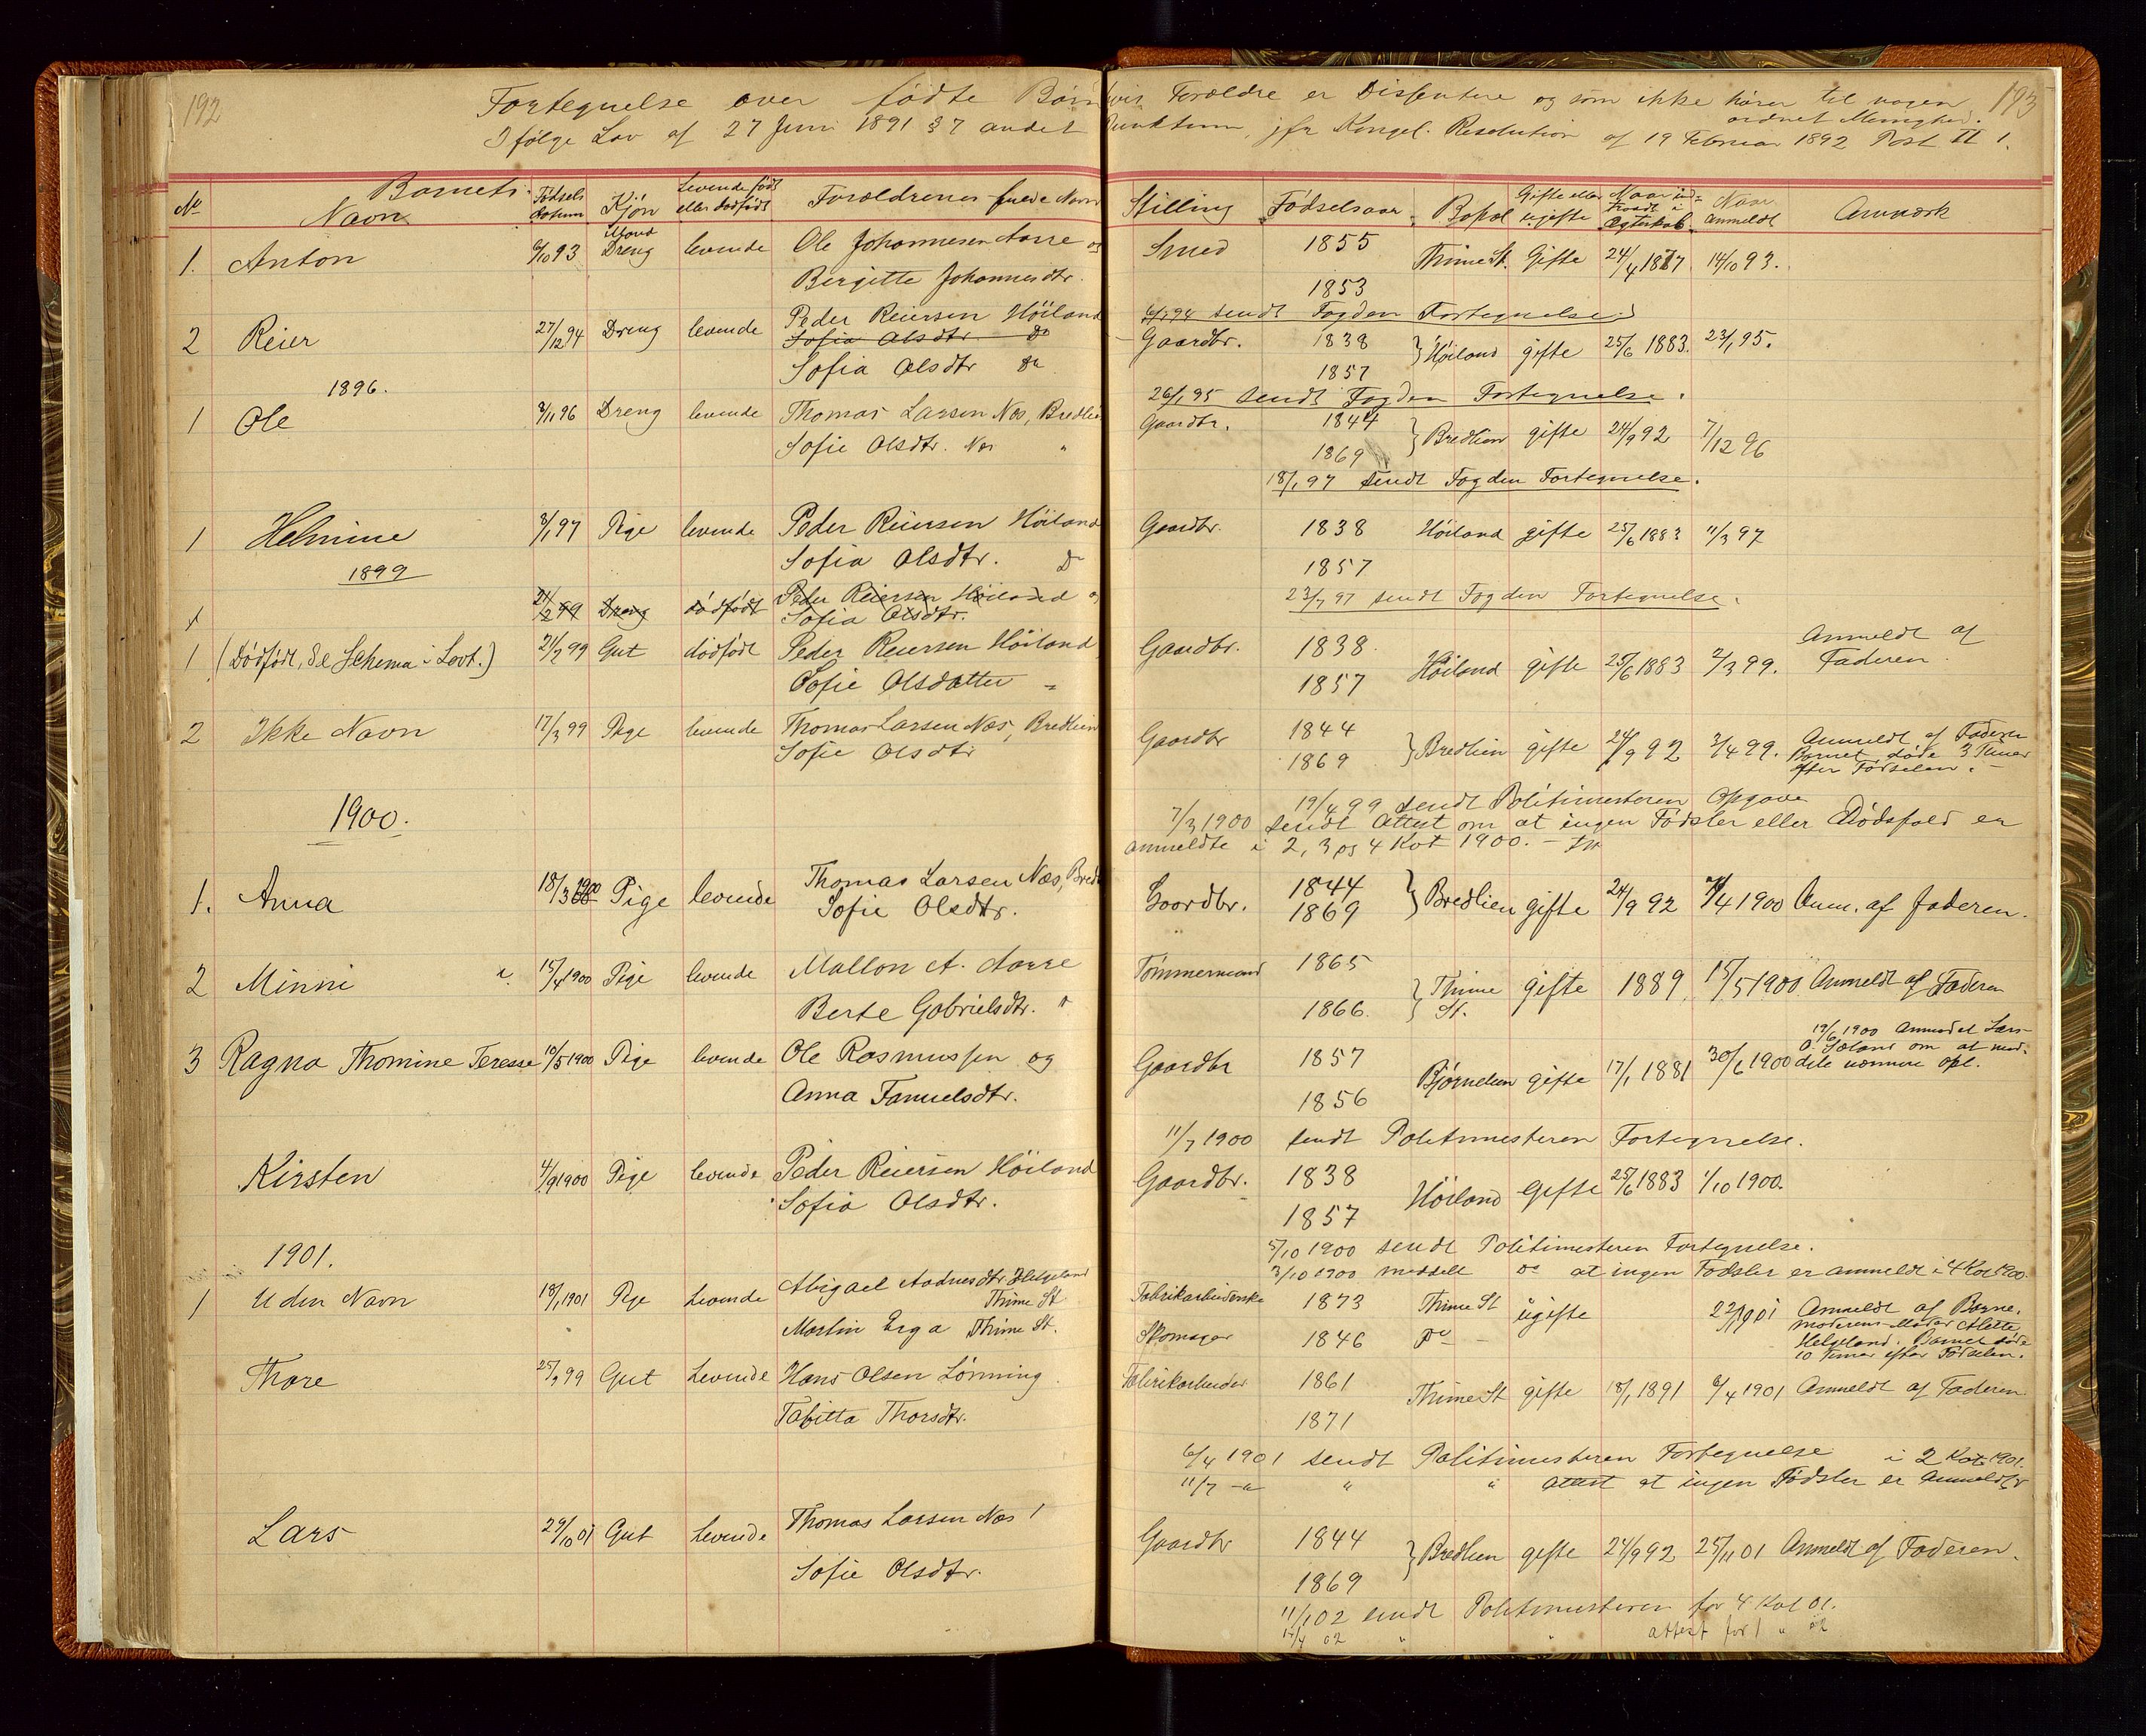 192
193
Fortegnelse over fødte Børn hvis Forældre er Dissentere og som ikke hører til nogen
ordnet Menighed.
Ifølge Lov af 27 Juni 1891 § 7 andet Punktum, jfr Kongel. Resolution af 19 Februar 1892 Post II 1.
No Barnets Navn Fødsels datum Kjøn Levende født eller dødfødt Forældrenes fulde Navn Stilling Fødselsaar Bopæl Gifte eller ugifte Naar ind- traadt i Ægteskab Naar anmeldt Anmærk
1. Anton 6/10 93 Dreng levende Ole Johannesen Aarre og Smed 1855 Thime St. Gifte 24/4 1877 14/10 93.
Birgitte Johannesdtr. 1853
94 sendt Fogden Fortegnelse
2 Reier 27/12 94 Dreng levende Peder Reiersen Höiland Gaardbr. 1838 Höiland gifte 25/6 1883. 23/1 95.
Sofia Olsdtr Do
Sofia Olsdtr Do 1857
1896.
26/1 95 sendt Fogden Fortegnelse.
1 Ole 3/11 96 Dreng levende Thomas Larsen Næs, Bredlien Gaardbr. 1844 Bredlien gifte 24/9 92 7/12 96
Sofie Olsdtr. Næs " 1869
18/1 97 sendt Fogden Fortegnelse.
1 Helmine 3/1 97 Pige levende Peder Reiersen Höiland Gaardbr. 1838 Höiland gifte 25/6 1883 11/3 97
Sofia Olsdtr. Do 1857
1899
23/7 97 sendt Fogden Fortegnelse.
1 21/2 99 Dreng dödfödt Peder Reiersen Höiland og
Sofia Olsdtr.
1 (Dödfödt, se Schema i Lovt.) 21/2 99 Gut dödfödt Peder Reiersen Höiland Gaardbr. 1838. Höiland gifte 25/6 1883 2/3 99. Anmeldt af Faderen.
Sofie Olsdatter " 1857
2 Ikke Navn 17/3 99 Pige levende Thomas Larsen Næs, Bredlien Gaardbr 1844 Bredlien gifte 24/9 92 3/4 99. Anmeldt af Faderen
Sofie Olsdtr 1869 Barnet døde 3 Timer
efter Fødselen.
1900.
19/4 99 sendt Politimesteren Opgave
7/3 1900 sendt Attest om at ingen Födsler eller Dödsfald er
anmeldte i 2, 3 og 4 Kvt 1900.
1. Anna 18/3 1900 Pige levende Thomas Larsen Næs, Bredl Gaardbr. 1844 Bredlien gifte 24/9 92 /4 1900 Anm. af Faderen.
Sofie Olsdtr. 1869
2 Minni 15/4 1900 Pige levende Mallon A. Aarre Tömmermand 1865 Thime St. gifte 1889 15/5 1900 Anmeldt af Faderen
Berte Gabrielsdtr. " 1866.
3 Ragna Thomine Teresse 10/5 1900 Pige levende Ole Rasmussen og Gaardbr 1857 gifte 17/1 1881 30/6 1900 19/6 1900 Anmodet Lars
O. Sæland om at med-
dele nærmere Opl.
Anna Samuelsdtr. 1856
11/7 1900 sendt Politimesteren Fortegnelse.
Kirsten 4/9 1900 Pige levende Peder Reiersen Höiland Gaardbr. 1838 Höiland Gifte 25/6 1883 1/10 1900.
Sofia Olsdtr. 1857
5/10 1900 sendt Politimesteren Fortegnelse.
1901.
3/10 1900 meddelt Do at ingen Födsler er anmeldt i 4 Kvt 1900.
1 Uden Navn 18/1 1901 Pige Levende Abigael Aadnesdtr. Helgeland Thime St. Fabrikarbeiderske 1873 Thime St ugifte 22/1 1901 Anmeldt af Barne-
moderens Moder Alette
Martin Erga Thime St. Skomager 1846 Do Helgeland. Barnet døde
10 Timer efter Fødselen.
Thore 25/3 99 Gut Levende Hans Olsen Lönning Fabrikarbeider 1861 Thime St gifte 18/1 1891 6/4 1901 Anmeldt af Faderen
Tabitta Thorsdtr. 1871
6/4 1901 sendt Politimesteren Fortegnelse i 2 Kvt 1901.
11/7 " " " Attest at ingen Födsler er Anmeldt
Lars 29/10 01 Gut Levende Thomas Larsen Næs Gaardbr 1844 Bredlien gifte 24/9 92 25/11 01 Anmeldt af Faderen.
Sofie Olsdtr. 1869
11/1 02 sendt Politimesteren for 4 Kvt 01.
/4 02 " " attest for 1 " 02